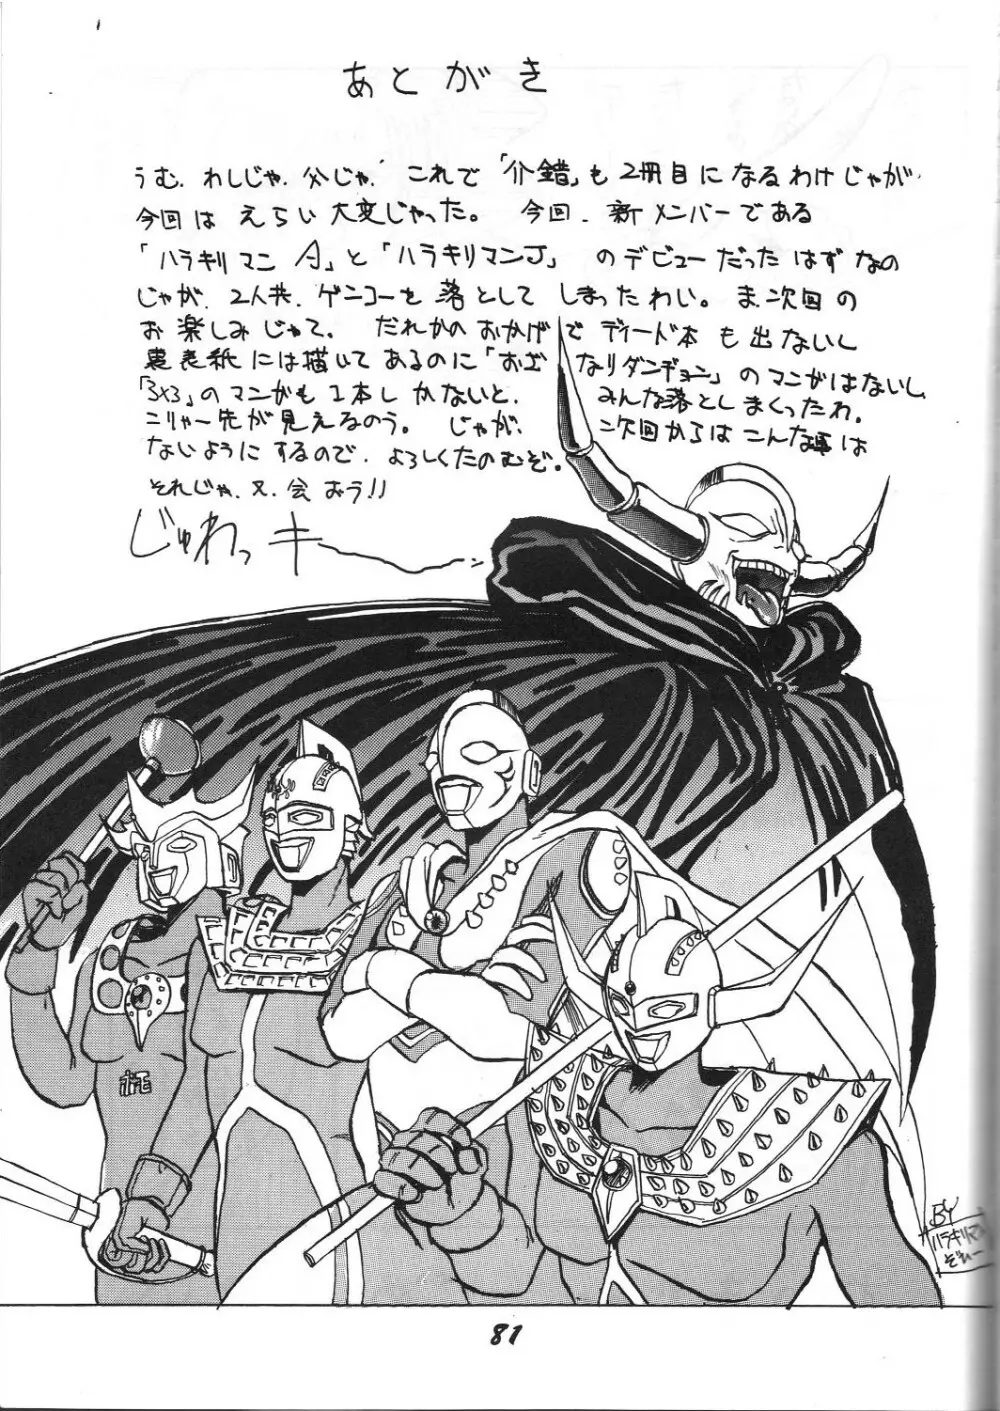 あとがき
うむ、わしじゃ、父じゃ、これで「介錯」も2冊目になるわけじゃが、
今回はえらい大変じゃった。今回、新メンバーである
「ハラキリマンA」と「ハラキリマンJ」のデビューだったはずなの
じゃが、2人共、ゲンコーを落としてしまったわい。ま、次回の
お楽しみじゃて。だれかのおかげでディード本も出ないし
裏表紙には描いてあるのに「おざなりダンヂョン」のマンガはないし、
「3×3」のマンガも1本しかないと、みんな落としまくったわ。
こりゃー先が見えるのう。じゃが、次回からはこんな事は
ないようにするので、よろしくたのむぞ。
それじゃ、又、会おう!!
じゅわっ キー
ホモ
BY
ハラキリマン
ぞひー
81